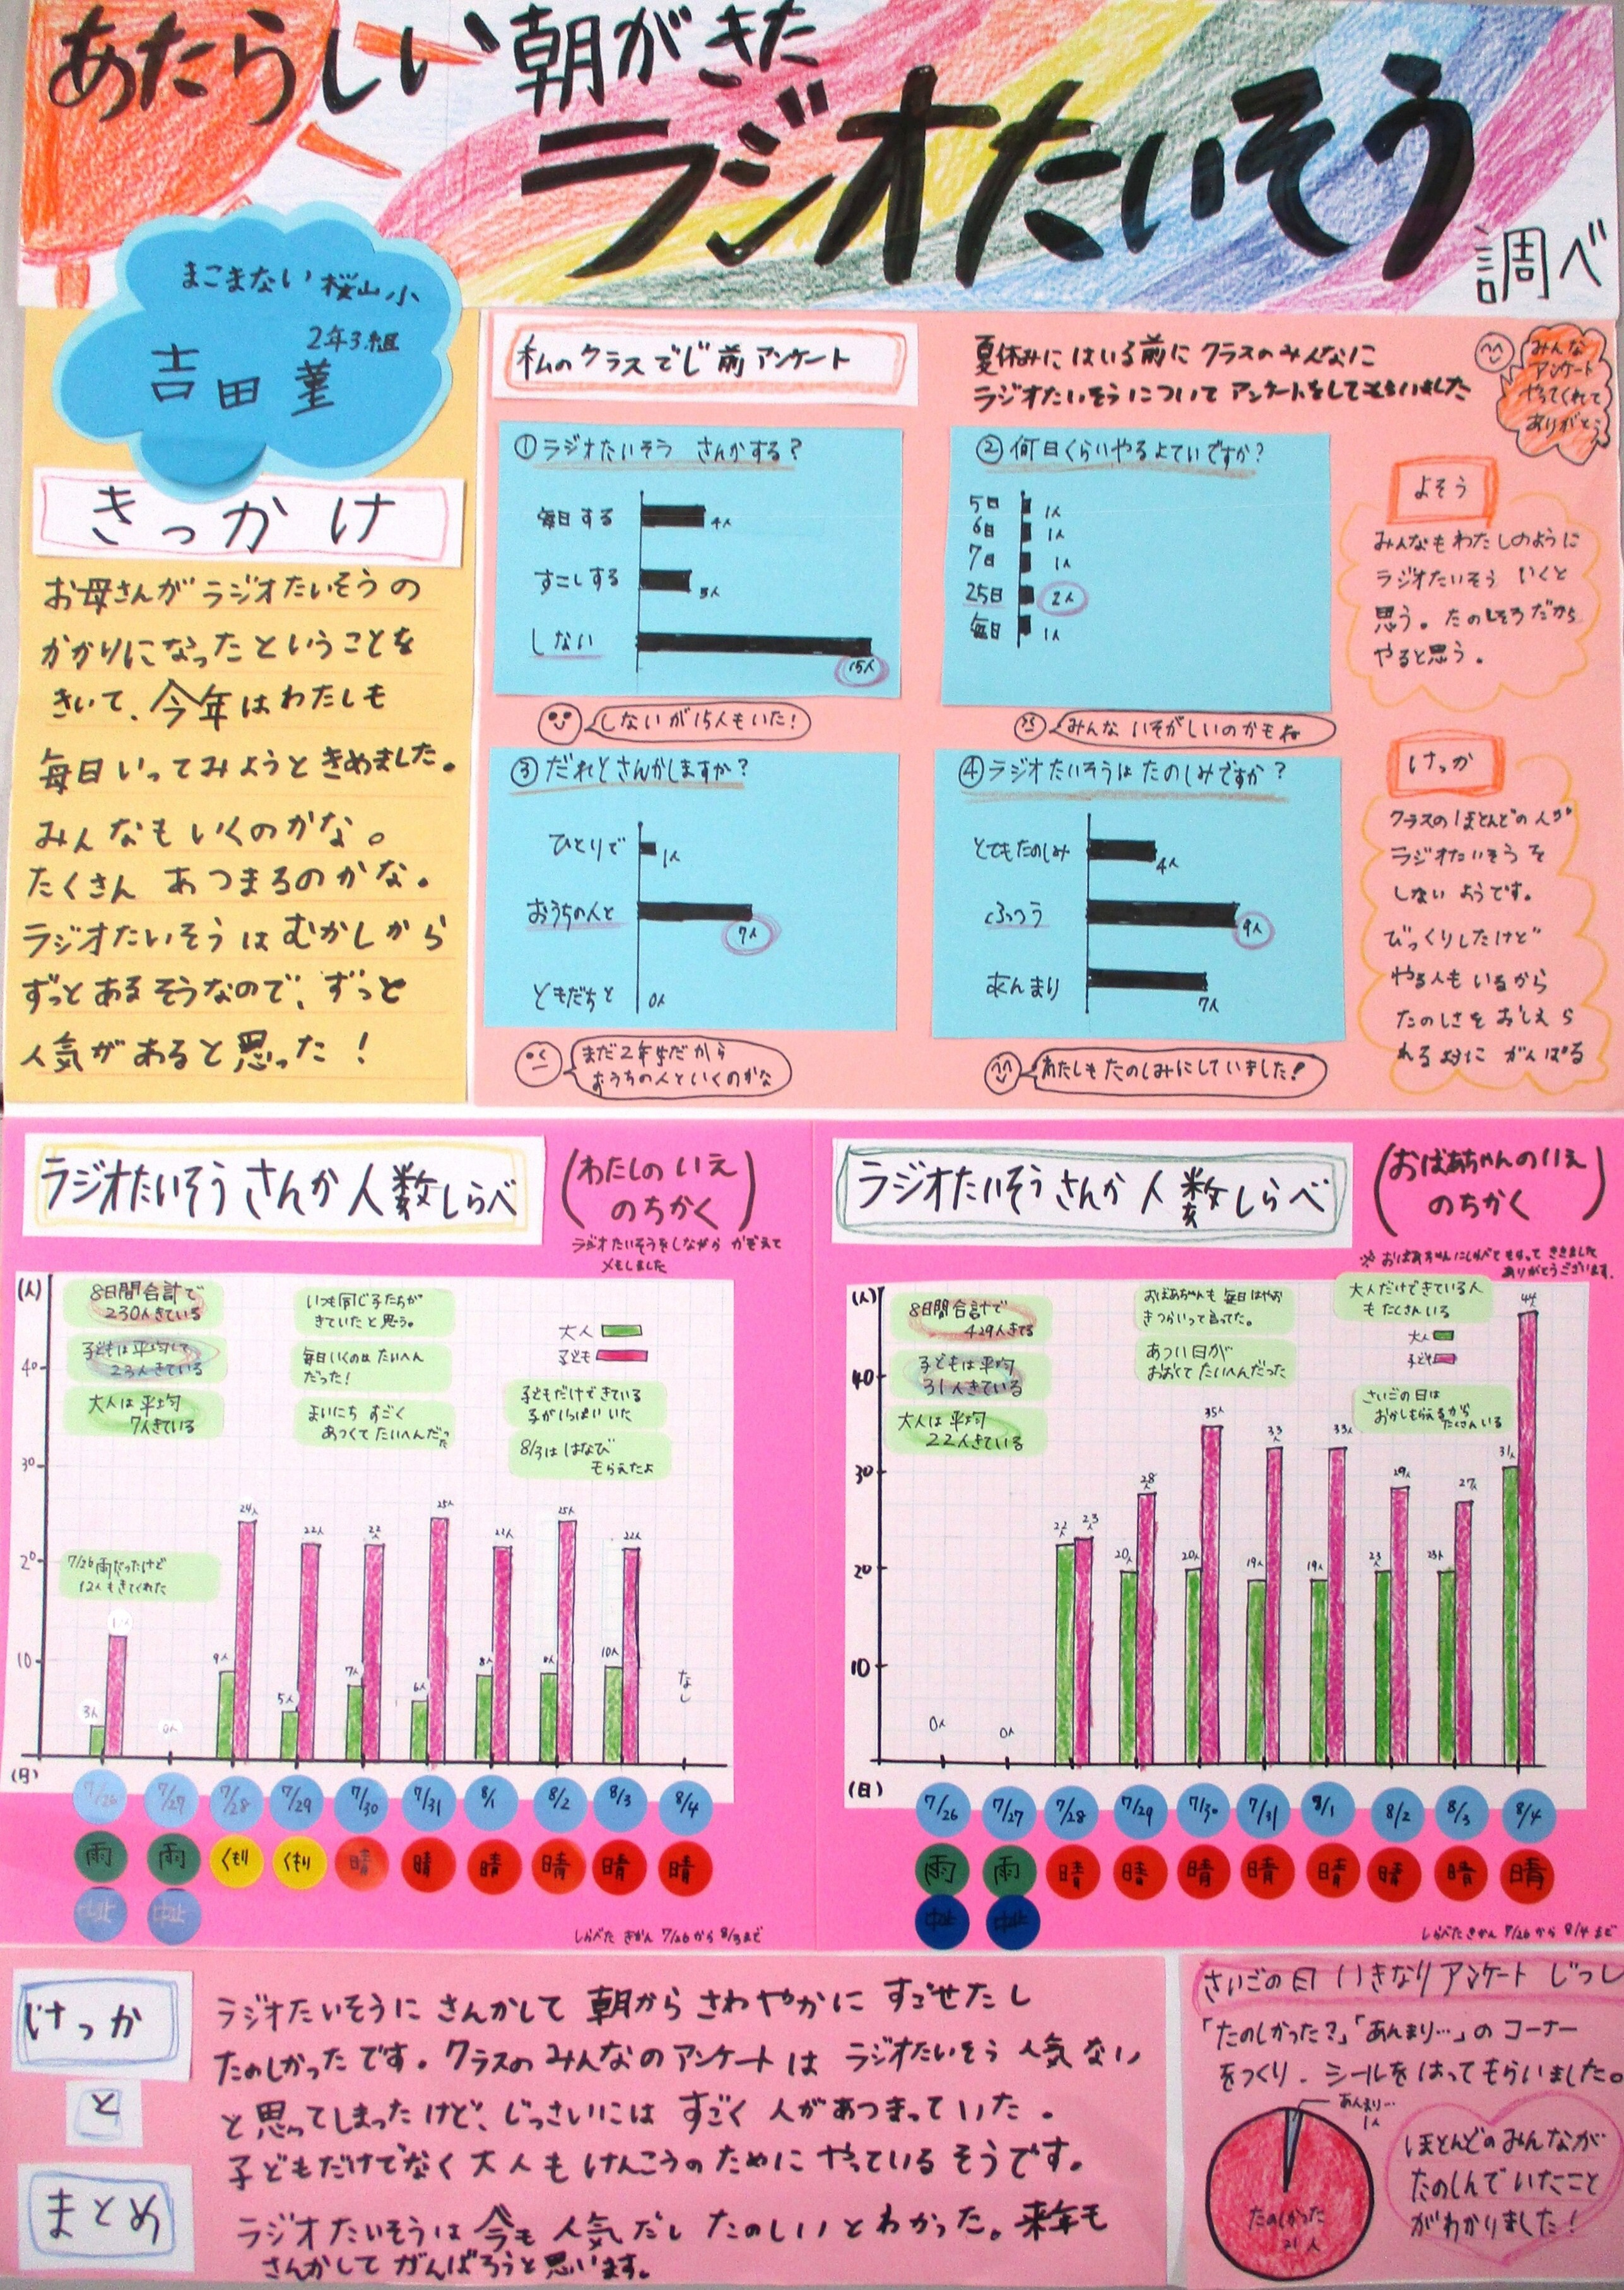 あたらしい朝がきた
ラジオたいそう
調べ
まこまない桜山小
2年3組
吉田菫
きっかけ
お母さんがラジオたいそうの
かかりになったということを
きいて、今年はわたしも
毎日いってみようときめました。
みんなもいくのかな。
たくさん あつまるのかな。
ラジオたいそうはむかしから
ずっとあるそうなので、ずっと
人気があると思った！
私のクラスでじ前アンケート
夏休みにはいる前にクラスのみんなに
ラジオたいそうについてアンケートをしてもらいました
みんな
アンケート
やってくれて
ありがとう
①ラジオたいそう さんかする？
毎日する 4人
すこしする 3人
しない 15人
しないが15人もいた！
②何日くらいやるよていですか？
5日 1人
6日 1人
7日 1人
25日 2人
毎日 1人
みんないそがしいのかもね
③だれとさんかしますか？
ひとりで 1人
おうちの人と 7人
ともだちと 0人
まだ2年生だから
おうちの人といくのかな
④ラジオたいそうはたのしみですか？
とてもたのしみ 4人
ふつう 9人
あんまり 7人
わたしもたのしみにしていました！
よそう
みんなもわたしのように
ラジオたいそう いくと
思う。たのしそうだから
やると思う。
けっか
クラスのほとんどの人が
ラジオたいそうを
しないようです。
びっくりしたけど
やる人もいるから
たのしさをおしえら
れるようにがんばる
ラジオたいそうさんか人数しらべ
（わたしのいえ
のちかく）
ラジオたいそうをしながらかぞえて
メモしました
(人)
8日間合計で
230人きている
子どもは平均して
23人きている
大人は平均
7人きている
いつも同じ子たちが
きていたと思う。
毎日いくのはたいへん
だった！
まいにちすごく
あつくてたいへんだった
大人
子ども
子どもだけできている
子がいっぱいいた
8/3ははなび
もらえたよ
7/26雨だったけど
12人もきてくれた
40
30
20
10
3人 0人 9人 24人 5人 22人 7人 22人 6人 25人 8人 22人 25人 10人 22人 なし
(日)
7/26 7/27 7/28 7/29 7/30 7/31 8/1 8/2 8/3 8/4
雨 雨 くもり くもり 晴 晴 晴 晴 晴 晴
中止 中止
しらべたきかん 7/26から8/3まで
ラジオたいそうさんか人数しらべ
（おばあちゃんのいえ
のちかく）
ありがとうございます。
(人)
8日間合計で
429人きてる
子どもは平均
31人きている
大人は平均
22人きている
おばあちゃんも毎日はやおき
つらいって言ってた。
あつい日が
おおくてたいへんだった
大人だけできている人
もたくさんいる
大人
子ども
さいごの日は
おかしもらえるから
たくさんいる
40
30
20
10
0人 0人 22人 23人 20人 28人 20人 35人 19人 33人 19人 33人 23人 29人 23人 27人 31人 44人
(日)
7/26 7/27 7/28 7/29 7/30 7/31 8/1 8/2 8/3 8/4
雨 雨 晴 晴 晴 晴 晴 晴 晴 晴
中止 中止
しらべたきかん 7/26から8/4まで
けっか
と
まとめ
ラジオたいそうにさんかして朝からさわやかにすごせたし
たのしかったです。クラスのみんなのアンケートはラジオたいそう人気ない
と思ってしまったけど、じっさいにはすごく人があつまっていた。
子どもだけでなく大人もけんこうのためにやっているそうです。
ラジオたいそうは今も人気だしたのしいとわかった。来年も
さんかしてがんばろうと思います。
さいごの日いきなりアンケートじっし
「たのしかった？」「あんまり…」のコーナー
をつくり、シールをはってもらいました。
あんまり…
1人
たのしかった
21人
ほとんどのみんなが
たのしんでいたこと
がわかりました！